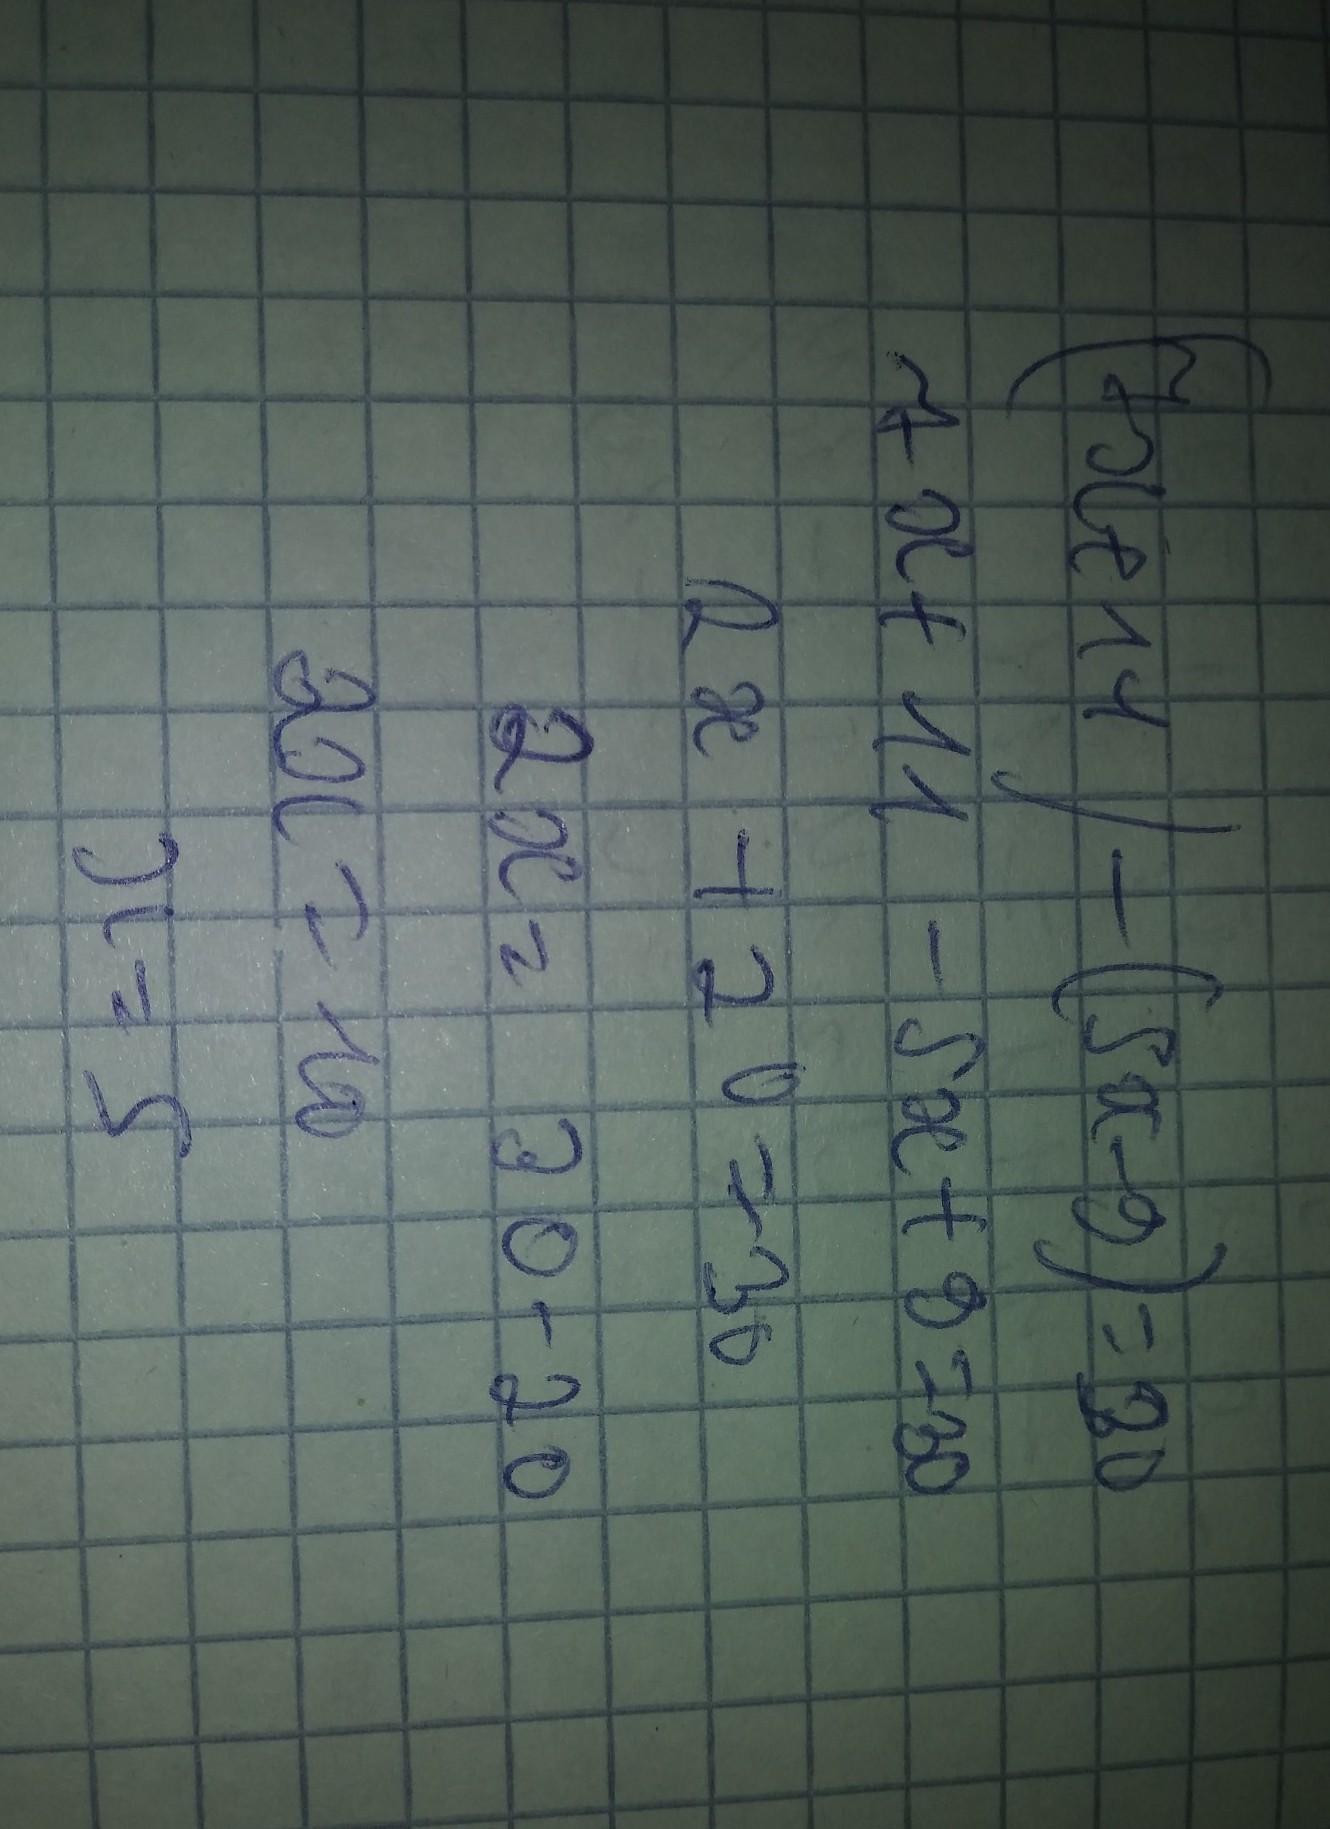 (7x+11)-(5x-9)=30
7x+11-5x+9=30
2x+20=30
2x= 30-20
2x=10
x=5